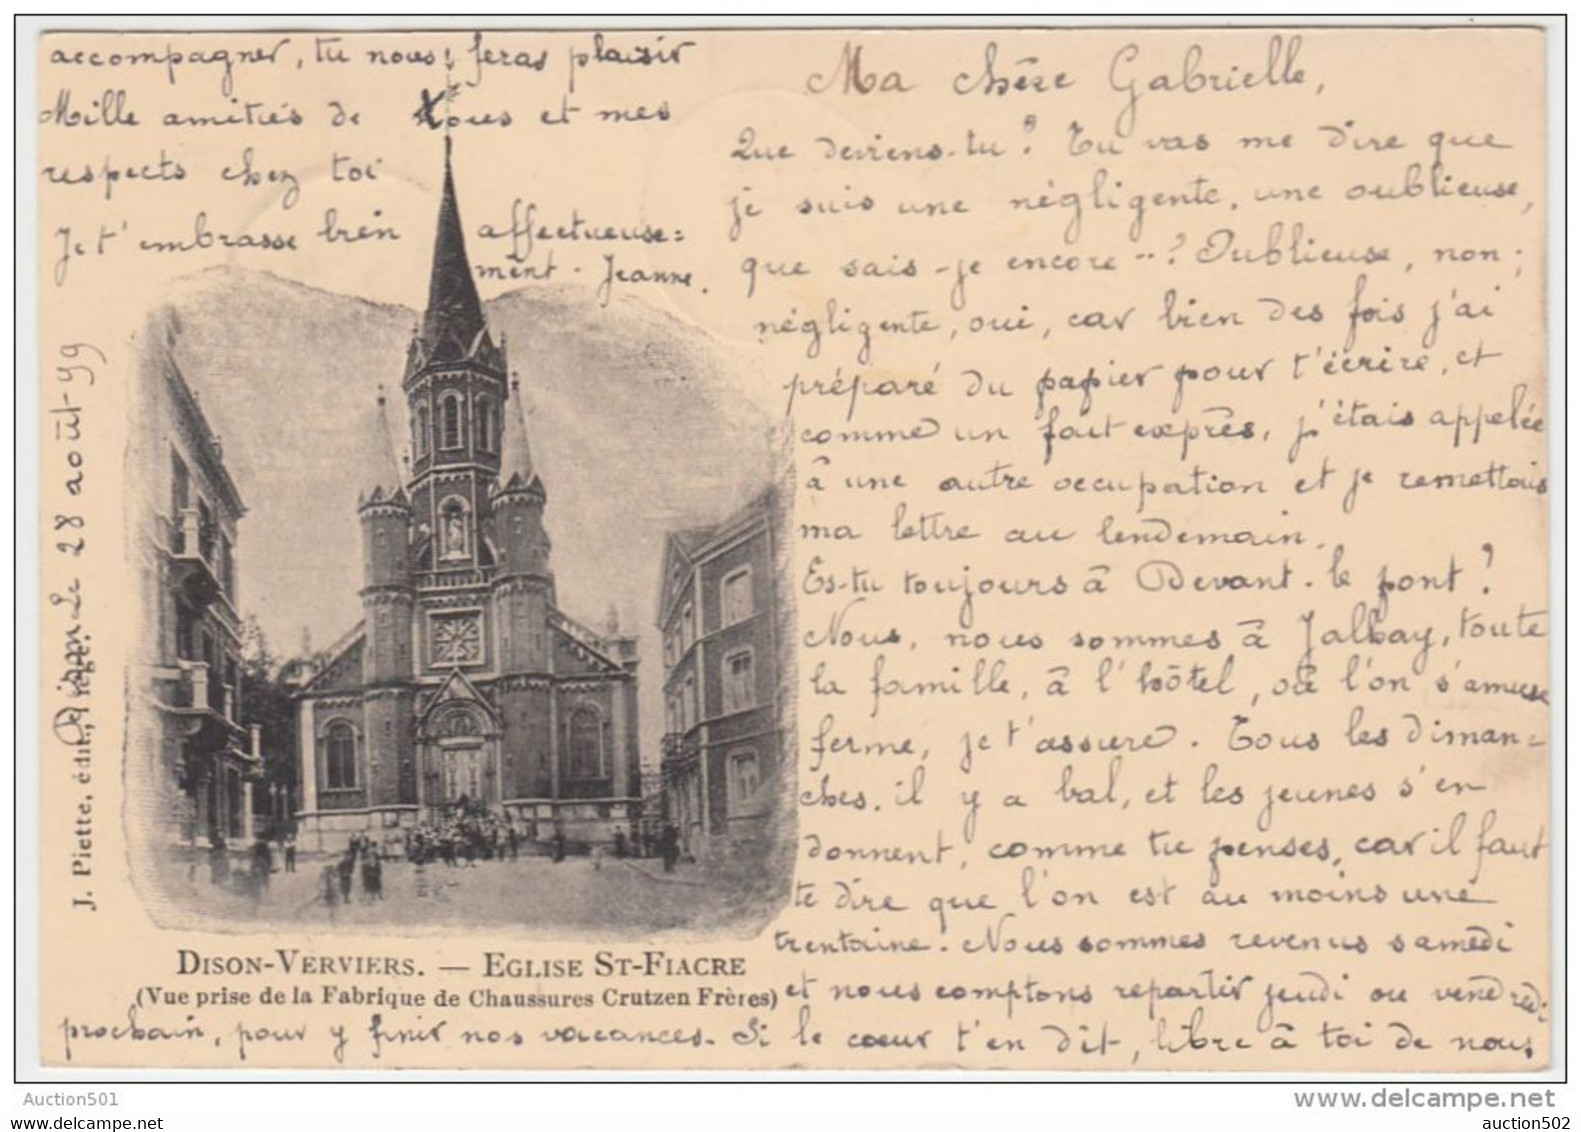 Ma chère Gabrielle,
Que deviens-tu? Tu vas me dire que
je suis une négligente, une oublieuse,
que sais-je encore..? Oublieuse, non;
négligente, oui, car bien des fois j'ai
préparé du papier pour t'écrire, et
comme un fait exprès, j'étais appelée
à une autre occupation et je remettais
ma lettre au lendemain.
Es-tu toujours à Devant-le pont?
Nous, nous sommes à Jalhay, toute
la famille, à l'hôtel, où l'on s'amuse
ferme, je t'assure. Tous les diman=
ches, il y a bal, et les jeunes s'en
donnent, comme tu penses, car il faut
te dire que l'on est au moins une
trentaine. Nous sommes revenus samedi
et nous comptons repartir jeudi ou vendredi
prochain, pour y finir nos vacances. Si le cœur t'en dit, libre à toi de nous
accompagner, tu nous feras plaisir
Mille amitiés de tous et mes
respects chez toi
Je t'embrasse bien affectueuse=
ment. Jeanne.
Dison Le 28 août 99
J. Piette, édit., Liége.
DISON-VERVIERS. — EGLISE ST-FIACRE
(Vue prise de la Fabrique de Chaussures Crutzen Frères)
Auction501
www.delcampe.net
auction502